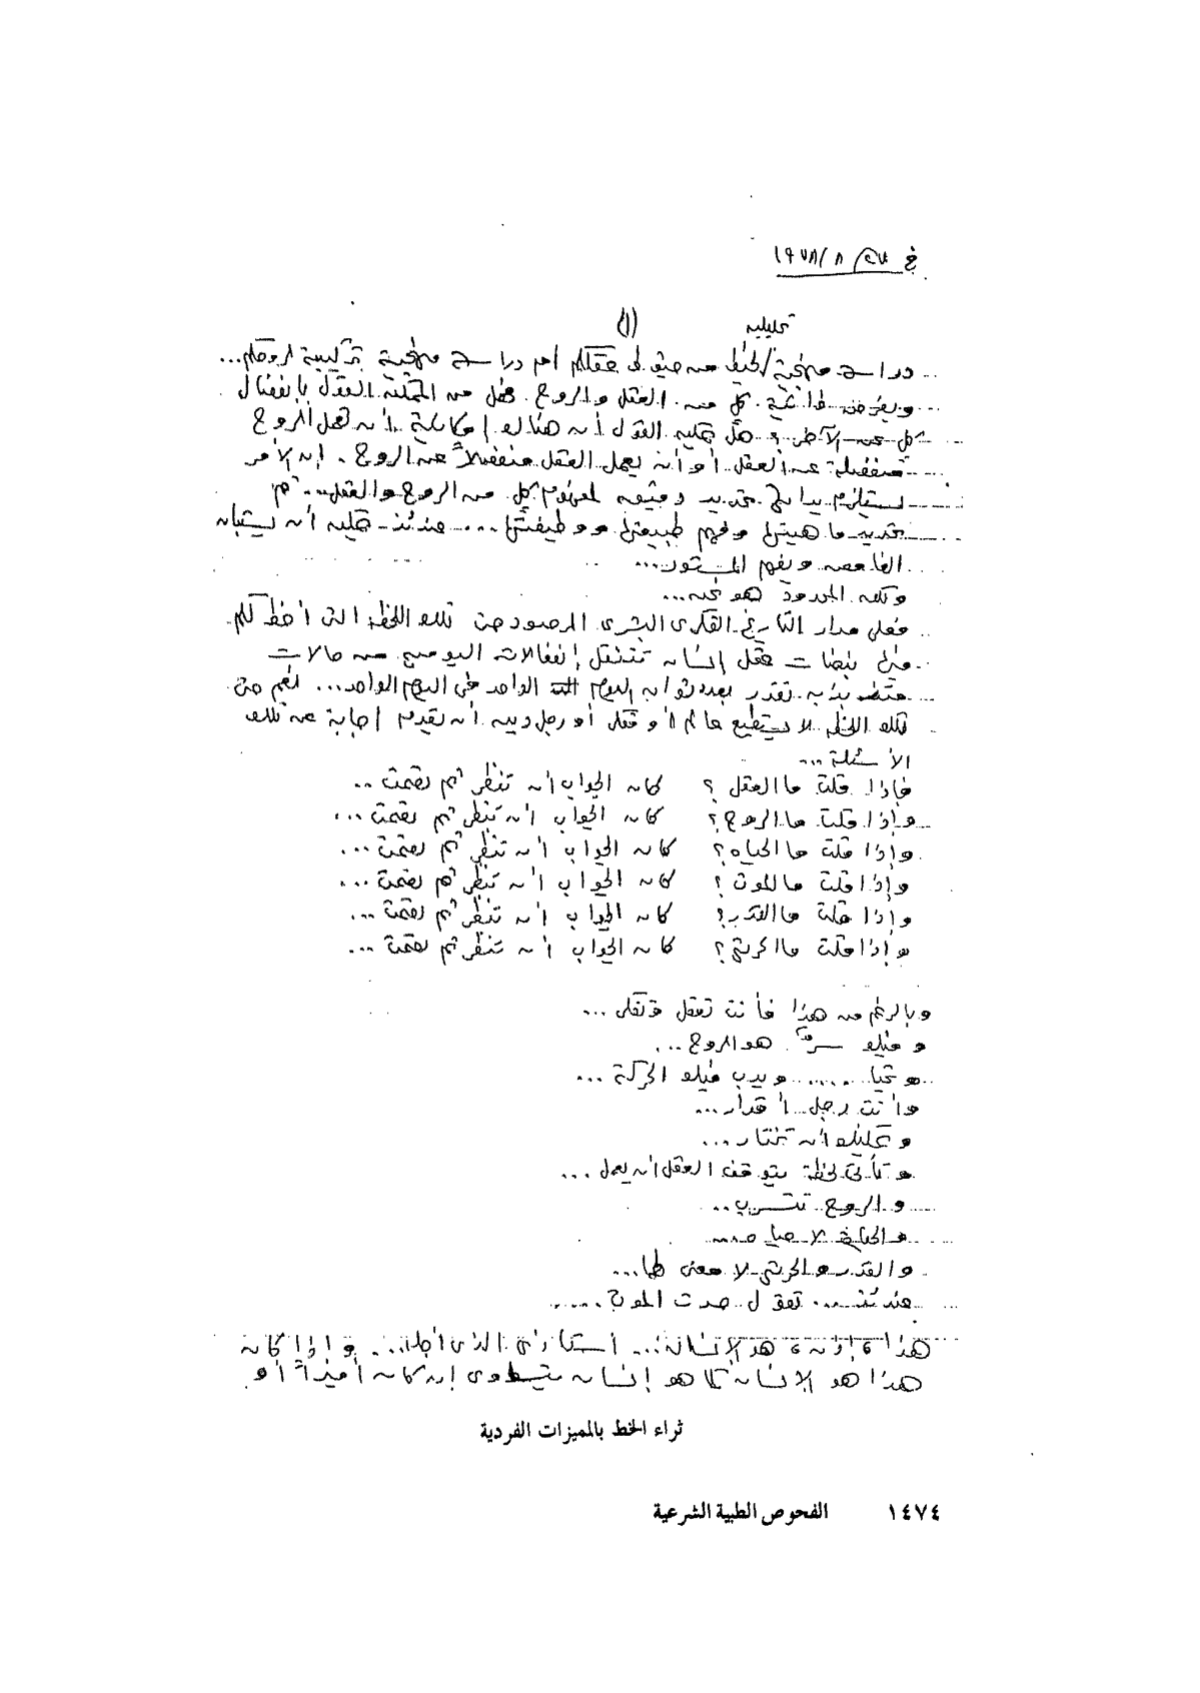 في ٢٧/ ٨ /١٩٧٨
(١)
تحليلية
دراسة منهجية من عقلكم أم دراسة منهجية تركيبية لروحكم...
ويفرض ذاتية كل من العقل والروح. فهل من الممكن القول بانفصال
كل عن الآخر؟ هل يمكن القول أن هنالك إمكانية أن تعمل الروح
منفصلة عن العقل أو أن يعمل العقل منفصلاً عن الروح. إن الأمر
يستلزم تحديد دقيق لمفهوم كل من الروح والعقل... ثم
تحديد ماهيتها وفهم طبيعتها ووظيفتها... عندئذ يمكن أن يستبان
الغامض ويفهم المستور...
ولكن المحدود هو نحن...
فعلى مدار التاريخ الفكري البشري المرصود حتى تلك اللحظة التي أخط لكم
فيها بنبضات عقل إنسان تنتقل انفعالات اليوم من حالات
متضاربة تقدر بعدد ثوان اليوم الواحد في اليوم الواحد... نعم حتى
تلك اللحظة لا يستطيع عالم أو فكر أو رجل دين أن يقدم إجابة عن تلك
الأسئلة...
فإذا قلت ما العقل ؟ كان الجواب أن تنظر ثم تصمت ..
وإذا قلت ما الروح؟ كان الجواب أن تنظر ثم تصمت ...
وإذا قلت ما الحياه؟ كان الجواب أن تنظر ثم تصمت ...
وإذا قلت ما الموت ؟ كان الجواب أن تنظر ثم تصمت ...
وإذا قلت ما القدر؟ كان الجواب أن تنظر ثم تصمت ...
وإذا قلت ما الحرية؟ كان الجواب أن تنظر ثم تصمت ...
وبالرغم من هذا فأنت تعقل وتفكر ...
وفيك سر هو الروح ...
وتحيا ...... ويدب فيك الحركة ...
وأنت رجل أقدار...
وعليك أن تختار...
وتأتي لحظة يتوقف العقل أن يعمل ...
والروح تتسرب..
والحياة لا حياة ...
والقدر والحرية لا معنى لها...
عندئذ ... تقول صمت الموت ......
هذا إذن هو الإنسان... أستاذي الذي أجله... وإذا كان
هذا هو الإنسان كما هو إنسان يتساوى إن كان أميراً أو
ثراء الخط بالمميزات الفردية
١٤٧٤ الفحوص الطبية الشرعية